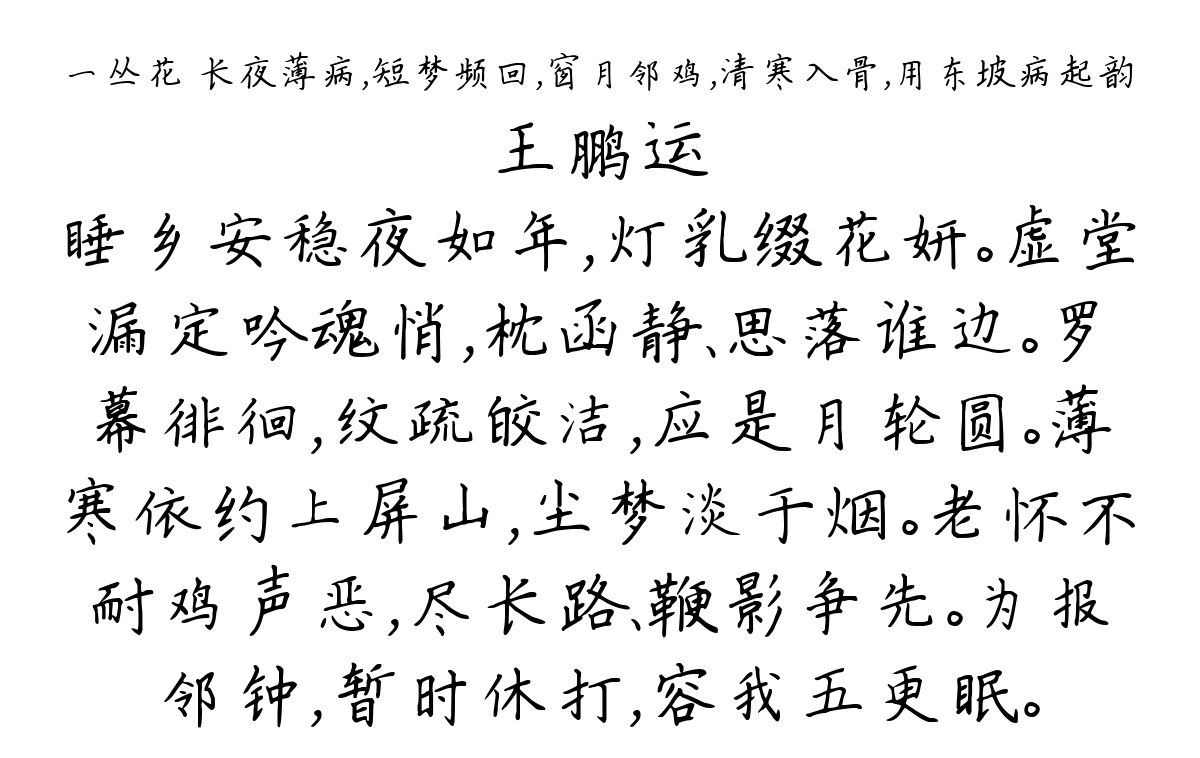 一丛花 长夜薄病,短梦频回,窗月邻鸡,清寒入骨,用东坡病起韵
王鹏运
睡乡安稳夜如年,灯乳缀花妍。虚堂
漏定吟魂悄,枕函静、思落谁边。罗
幕徘徊,纹疏皎洁,应是月轮圆。薄
寒依约上屏山,尘梦淡于烟。老怀不
耐鸡声恶,尽长路、鞭影争先。为报
邻钟,暂时休打,容我五更眠。